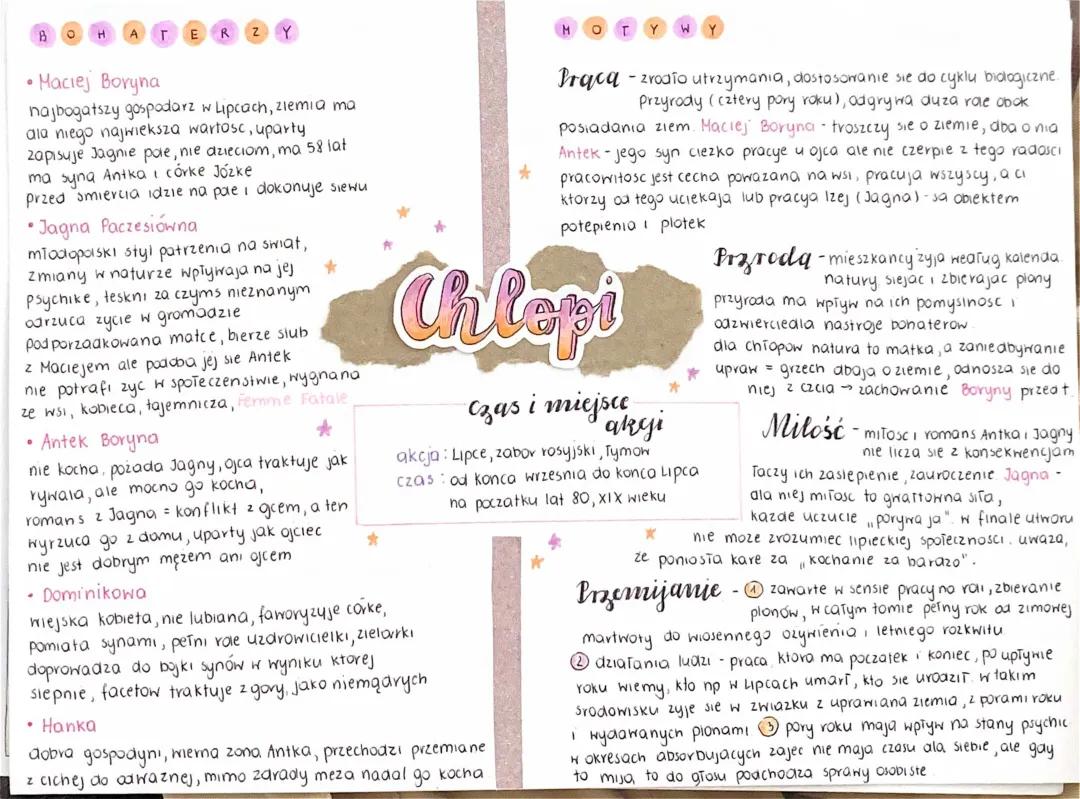 BOHATERZY
• Maciej Boryna
najbogatszy gospodarz w Lipcach, ziemia ma
dla niego największa wartosc, uparty
zapisuje Jagnie pole, nie dzieciom, ma 58 lat
ma syna Antka i córke Józke
przed smiercia idzie na pole i dokonuje siewu
• Jagna Paczesiówna
młodopolski styl patrzenia na swiat,
zmiany w naturze wpływaja na jej
psychike, teskni za czyms nieznanym
odrzuca zycie w gromadzie
podporzadkowana matce, bierze slub
z Maciejem ale podoba jej sie Antek
nie potrafi zyc w społeczenstwie, wygnana
ze wsi, kobieca, tajemnicza, Femme Fatale
• Antek Boryna
nie kocha, pozada Jagny, ojca traktuje jak
rywala, ale mocno go kocha,
romans z Jagna = konflikt z ojcem, a ten
wyrzuca go z domu, uparty jak ojciec
nie jest dobrym mężem ani ojcem
• Dominikowa
wiejska kobieta, nie lubiana, faworyzuje córke,
pomiata synami, pełni role uzdrowicielki, zielarki
doprowadza do bójki synów w wyniku ktorej
slepnie, facetow traktuje z gory, jako niemądrych
• Hanka
dobra gospodyni, wierna zona Antka, przechodzi przemiane
z cichej do odwaznej, mimo zdrady meza nadal go kocha
Chłopi
czas i miejsce
akcji
akcja: Lipce, zabor rosyjski, Tymow
czas: od konca wrzesnia do konca Lipca
na poczatku lat 80, XIX wieku
MOTYWY
Praca - zrodło utrzymania, dostosowanie sie do cyklu biologiczne.
Przyrody (cztery pory roku), odgrywa duza role obok
posiadania ziem. Maciej Boryna - troszczy sie o ziemie, dba o nia
Antek - jego syn ciezko pracuje u ojca ale nie czerpie z tego radosci
pracowitosc jest cecha powazana na wsi, pracuja wszyscy, a ci
ktorzy od tego uciekaja lub pracuja lzej (Jagna) - sa obiektem
potepienia i plotek
Przyroda - mieszkancy zyja według kalenda.
natury, siejac i zbierajac plony
przyroda ma wpływ na ich pomyslnosc i
odzwierciedla nastroje bohaterow.
dla chłopow natura to matka, a zaniedbywanie
upraw = grzech dbaja o ziemie, odnosza sie do
niej z czcia → zachowanie Boryny przed
Miłość - miłosc i romans Antka i Jagny
nie licza sie z konsekwencjam
łaczy ich zaslepienie, zauroczenie. Jagna -
dla niej miłosc to gwałtowna siła,
kazde uczucie „porywa ja". w finale utworu
nie moze zrozumiec lipieckiej społecznosci. uwaza,
ze poniosła kare za „kochanie za bardzo".
Przemijanie - 1 zawarte w sensie pracy na roli, zbieranie
plonów, w całym tomie pełny rok od zimowej
martwoty do wiosennego ozywienia i letniego rozkwitu
2 działania ludzi - praca, ktora ma poczatek i koniec, po upływie
roku wiemy, kto np w Lipcach umarł, kto sie urodził. w takim
srodowisku zyje sie w zwiazku z uprawiana ziemia, z porami roku
i wydawanych plonami 3 pory roku maja wpływ na stany psychic
w okresach absorbujacych zajec nie maja czasu dla siebie, ale gdy
to mija, to do głosu podchodza sprawy osobiste.